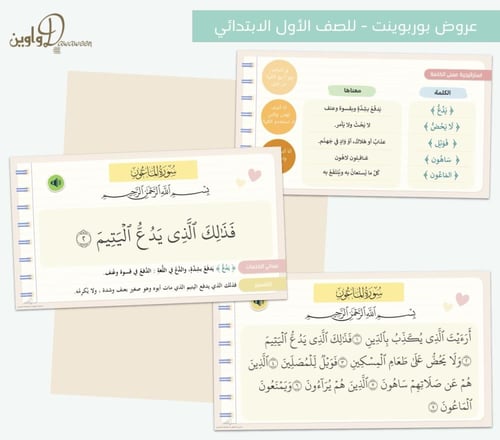 عروض بوربوينت - للصف الأول الابتدائي
دواوين
Dawaween
استراتيجية معنى الكلمة
الكلمة
معناها
﴿ يَدُعُّ ﴾
يَدفعُ بشِدَّةٍ وبقسوة وعنف
﴿ لَا يَحُضُّ ﴾
لا يَحُثُّ ولا يأمر.
﴿ فَوَيْلٌ ﴾
عذابٌ أو هلاكٌ، أو وادٍ في جهنّم.
﴿ سَاهُونَ ﴾
غـافـلونَ لاهون
﴿ المَاعُون ﴾
كلُّ ما يُستعانُ بهِ ويُنتفَعُ بهِ
سُورَةُ المَاعُونِ
بِسْمِ اللَّهِ الرَّحْمَٰنِ الرَّحِيمِ
فَذَٰلِكَ ٱلَّذِى يَدُعُّ ٱلْيَتِيمَ ٢
معاني الكلمات
﴿ يَدُعُّ ﴾ يَدفعُ بشِدَّةٍ، والدَّعُّ في اللُّغة : الدَّفعُ في قسوة وعُنف.
التفسير
فذلك الذي يدفع اليتيم الذي مات أبوه وهو صغير بعنف وشدة ، ولا يُكرمُه.
سُورَةُ المَاعُونِ
بِسْمِ اللَّهِ الرَّحْمَٰنِ الرَّحِيمِ
أَرَءَيْتَ ٱلَّذِى يُكَذِّبُ بِٱلدِّينِ ١ فَذَٰلِكَ ٱلَّذِى يَدُعُّ ٱلْيَتِيمَ
٢ وَلَا يَحُضُّ عَلَىٰ طَعَامِ ٱلْمِسْكِينِ ٣ فَوَيْلٌ لِّلْمُصَلِّينَ ٤ ٱلَّذِينَ
هُمْ عَن صَلَاتِهِمْ سَاهُونَ ٥ ٱلَّذِينَ هُمْ يُرَآءُونَ ٦ وَيَمْنَعُونَ
ٱلْمَاعُونَ ٧